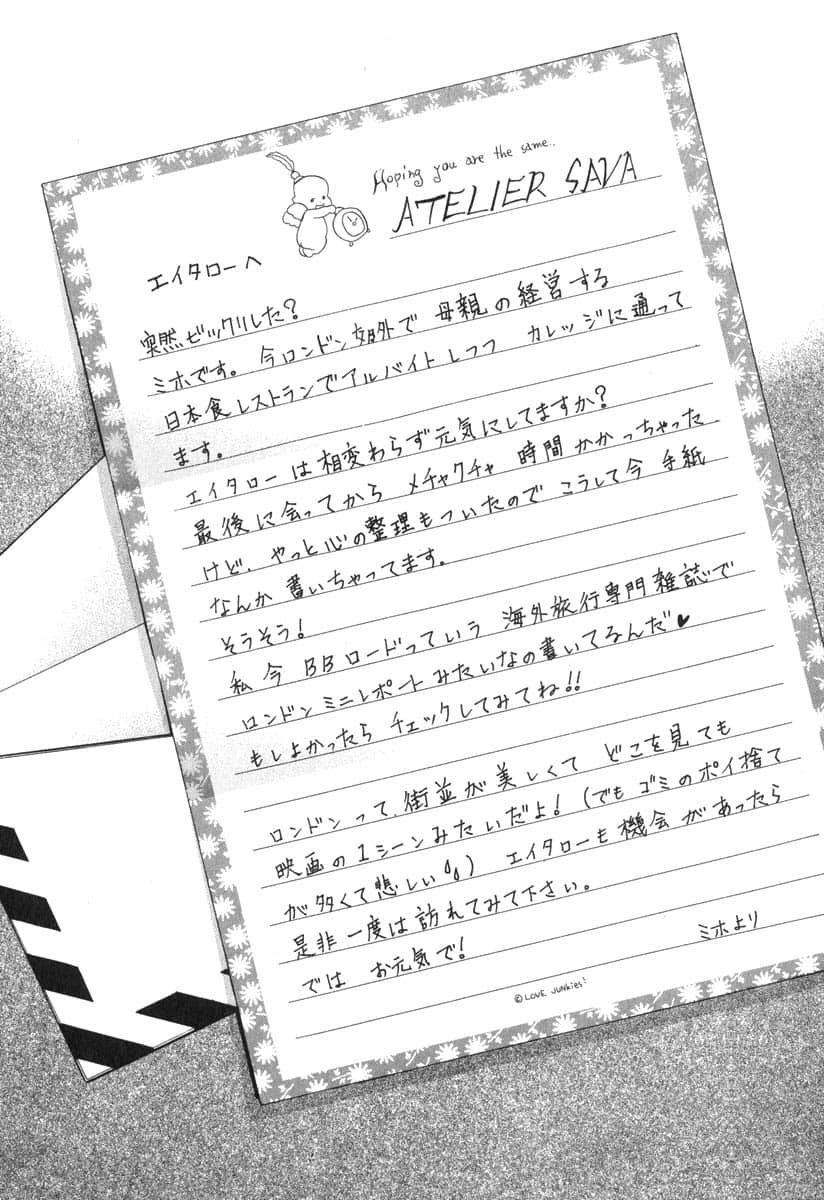 Hoping you are the same..
ATELIER SAVA
エイタローへ
突然ビックリした?
ミホです。今ロンドン郊外で母親の経営する
日本食レストランでアルバイトしつつ カレッジに通って
ます。
エイタローは相変わらず元気にしてますか?
最後に会ってから メチャクチャ 時間かかっちゃった
けど、やっと心の整理もついたので こうして今 手紙
なんか書いちゃってます。
そうそう!
私今 BBロードっていう 海外旅行専門雑誌で
ロンドンミニレポートみたいなの書いてるんだ♥
もしよかったら チェックしてみてね!!
ロンドンって、街並が美しくて どこを見ても
映画の1シーンみたいだよ!(でもゴミのポイ捨て
が多くて悲しい) エイタローも機会があったら
是非一度は訪れてみて下さい。
では お元気で!
ミホより
©LOVE JUNKies!